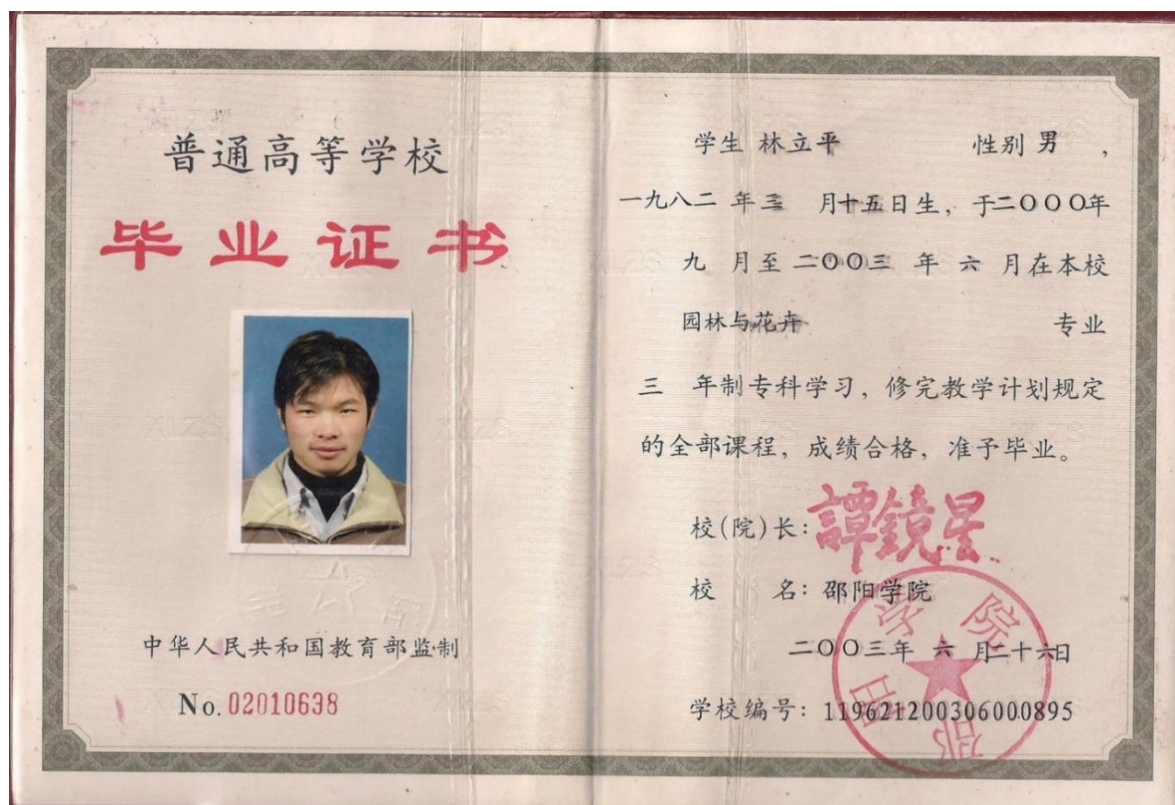 普通高等学校
毕业证书
中华人民共和国教育部监制
No. 02010638
学生 林立平 性别 男 ，
一九八二 年三 月十五日生，于二〇〇〇年
九 月至 二〇〇三 年 六 月在本校
园林与花卉 专业
三 年制专科学习，修完教学计划规定
的全部课程，成绩合格，准予毕业。
校(院)长：譚鏡星
校 名：邵阳学院
二〇〇三年 六 月二十六日
学校编号：119621200306000895